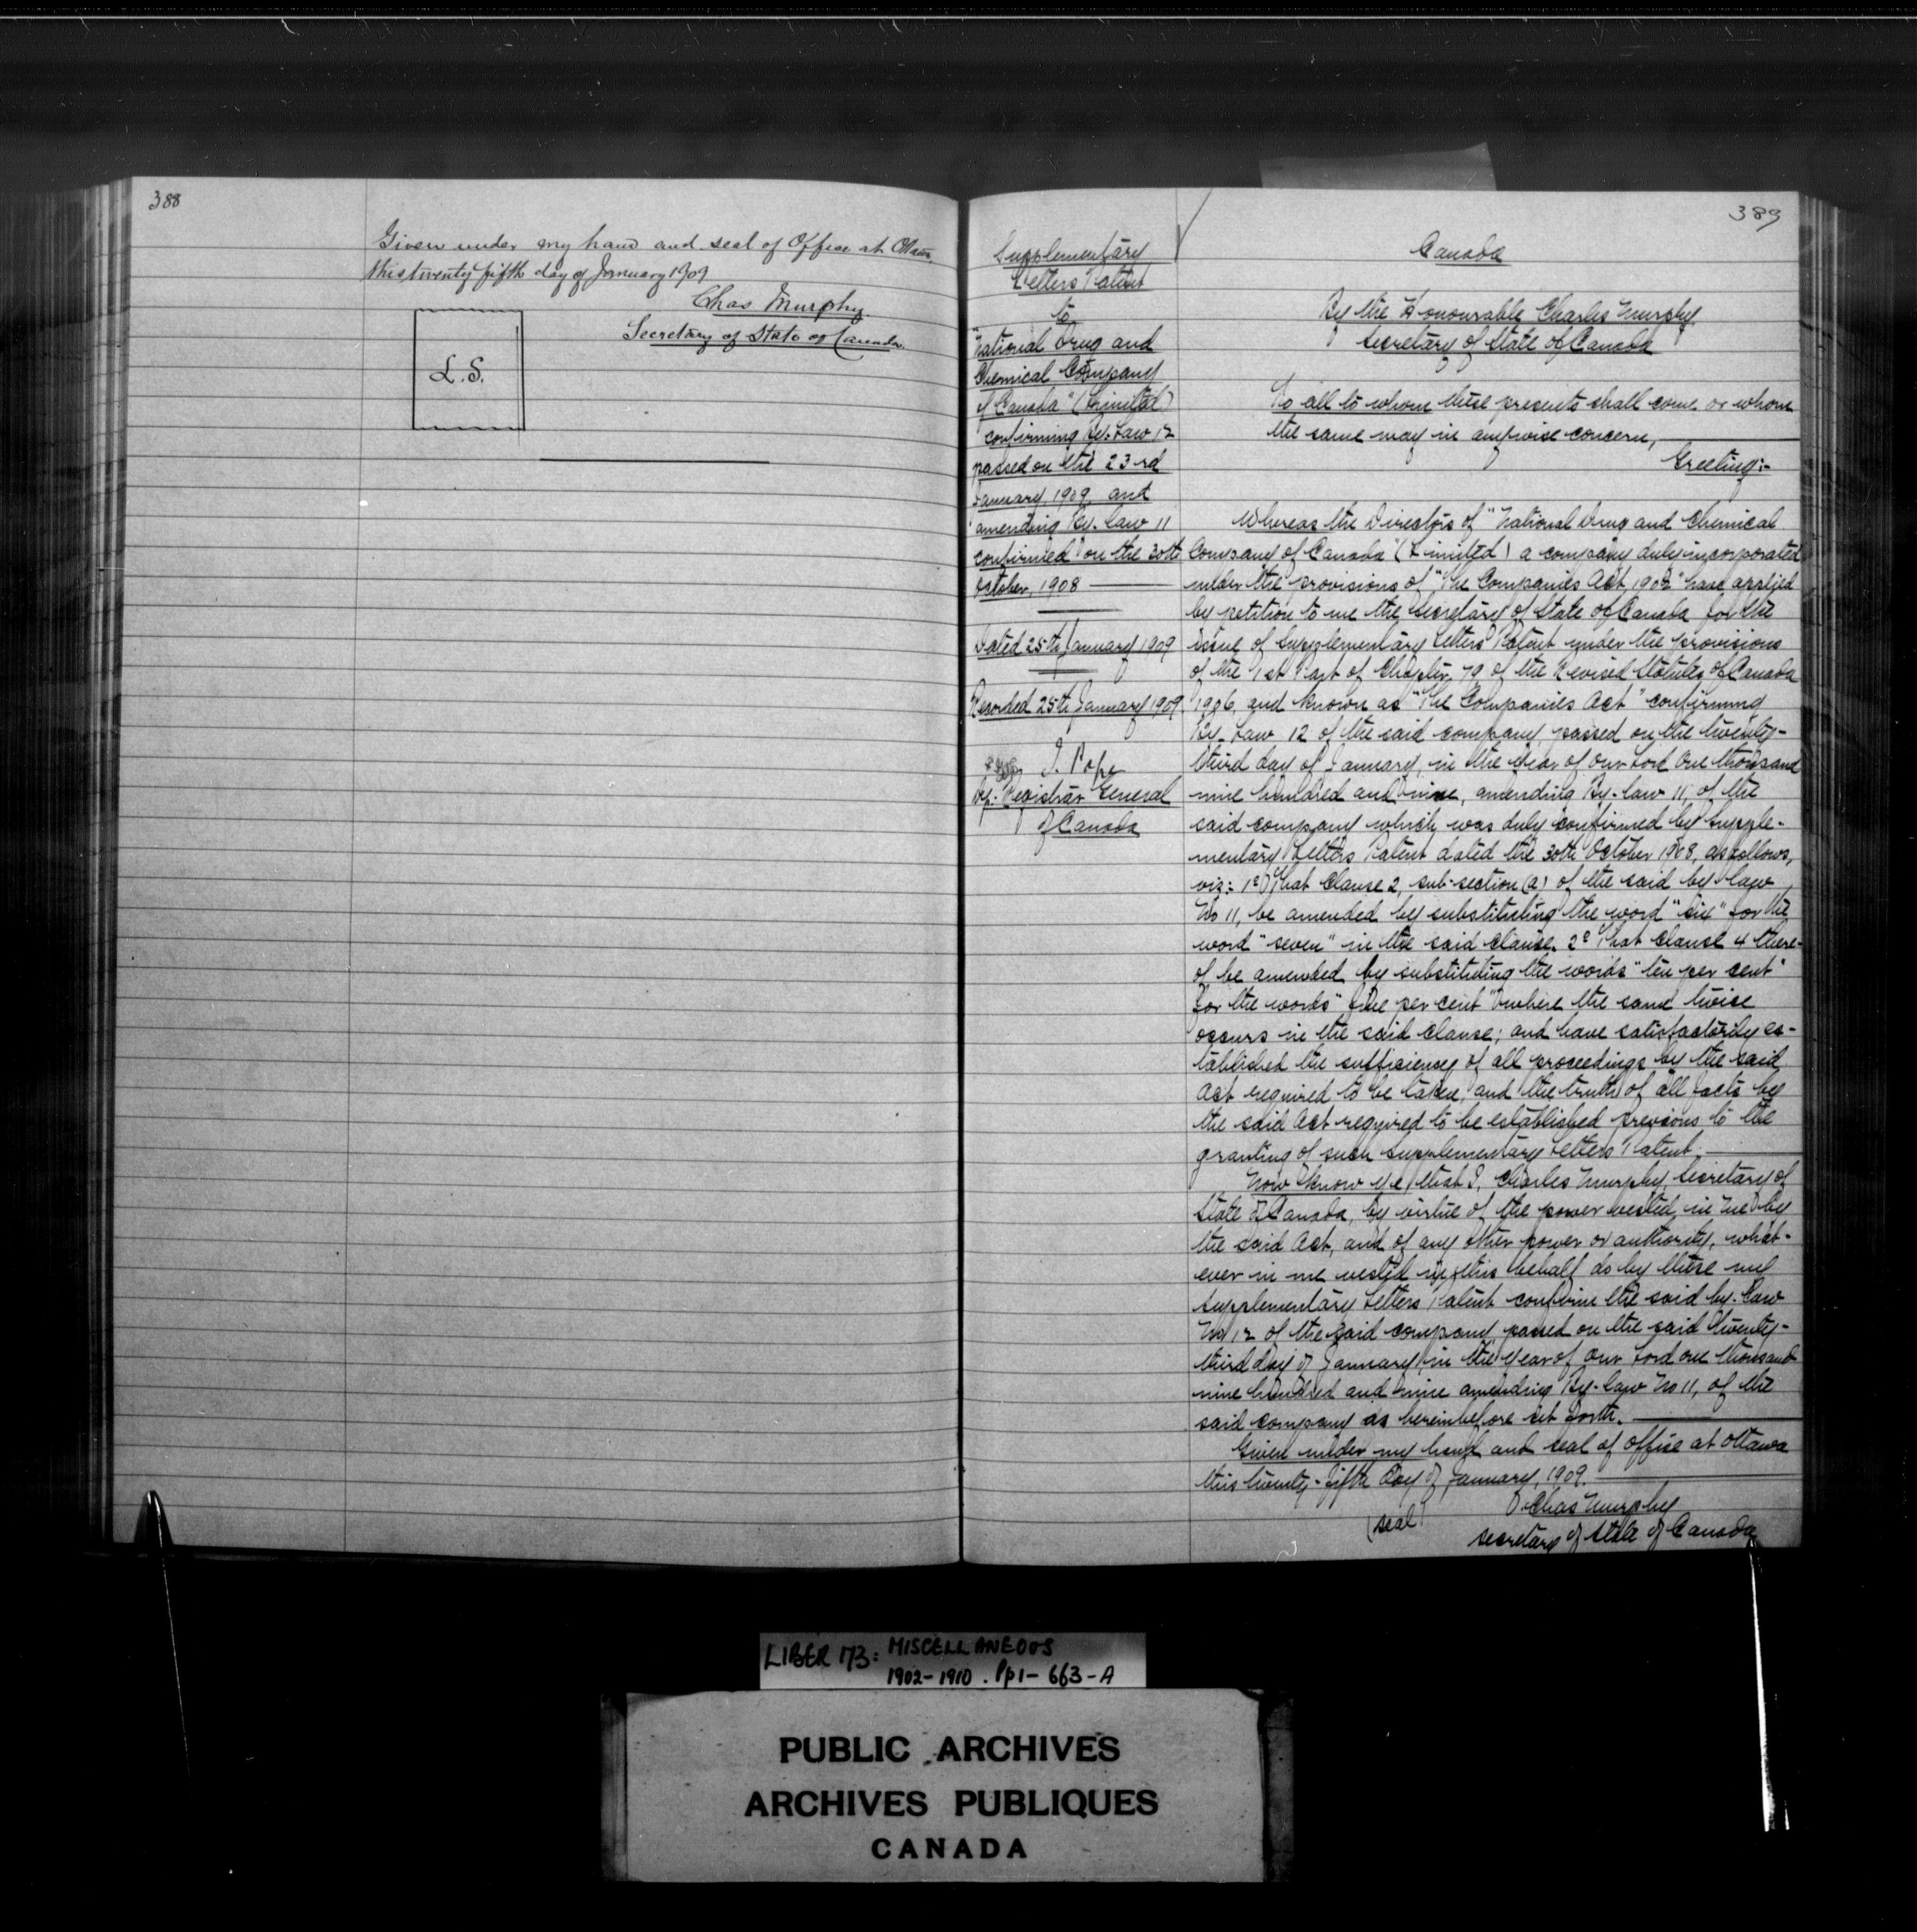 388
Given under my hand and seal of Office at Ottawa
this twenty fifth day of January 1909
Chas Murphy.
Secretary of State of Canada.
L.S.
Supplementary
Letters Patent
to
"National Drug and
Chemical Company
of Canada" (Limited)
confirming By-Law 12
passed on the 23rd
January, 1909, and
amending By-law 11
confirmed on the 30th
October, 1908
Dated 25th January 1909
Recorded 25th January 1909.
J. Pope
Dep. Registrar General
of Canada
389
Canada
By the Honourable Charles Murphy,
Secretary of State of Canada
To all to whom these presents shall come or whom
the same may in anywise concern,
Greeting:-
Whereas the Directors of "National Drug and Chemical
Company of Canada" (Limited) a company duly incorporated
under the provisions of "The Companies Act, 1902" have applied
by petition to me the Secretary of State of Canada for the
issue of Supplementary Letters Patent under the provisions
of the 1st Part of Chapter 79 of the Revised Statutes of Canada
1906, and known as "The Companies Act" confirming
By-Law 12 of the said company passed on the twenty-
third day of January, in the year of Our Lord One thousand
nine hundred and nine, amending By-law 11, of the
said company which was duly confirmed by Supple-
mentary Letters Patent dated the 30th October 1908, as follows,
viz: 1º That Clause 2, sub-section (a) of the said by-law
No 11, be amended by substituting the word "six" for the
word "seven" in the said clause. 2º That Clause 4 there-
of be amended by substituting the words "ten per cent"
for the words "five per cent" where the same twice
occurs in the said clause; and have satisfactorily es-
tablished the sufficiency of all proceedings by the said
Act required to be taken, and the truth of all facts by
the said Act required to be established previous to the
granting of such Supplementary Letters Patent.
Now Know Ye that I, Charles Murphy, Secretary of
State of Canada, by virtue of the power vested in me by
the said Act, and of any other power or authority, what-
ever in me vested in this behalf do by these my
Supplementary Letters Patent confirm the said by-law
No 12 of the said company passed on the said twenty-
third day of January, in the year of Our Lord one thousand
nine hundred and nine amending By-law No 11, of the
said company as hereinbefore set forth.
Given under my hand and seal of office at Ottawa
this twenty-fifth day of January, 1909.
Chas Murphy
(seal)
Secretary of State of Canada
LIBER 173: MISCELLANEOUS
1902-1910. Pp1-663-A
PUBLIC ARCHIVES
ARCHIVES PUBLIQUES
CANADA